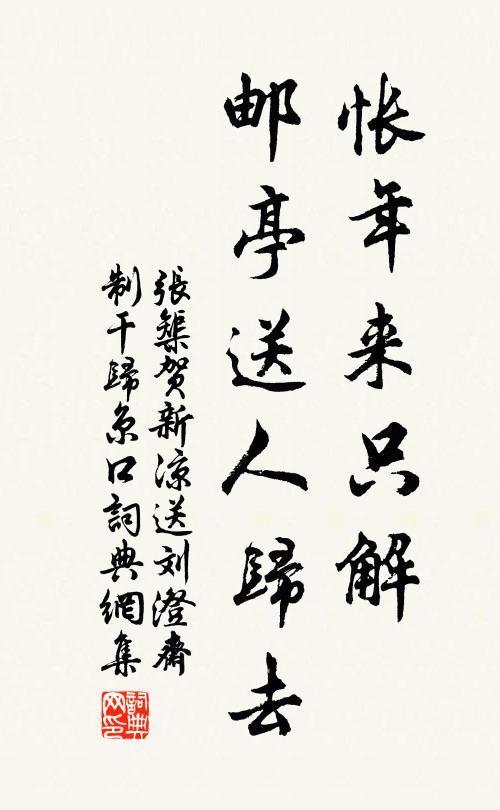 怅年来只解
邮亭送人歸去
張榘贺新凉送刘澄齋
制干歸京口詞典網集
詞典网印